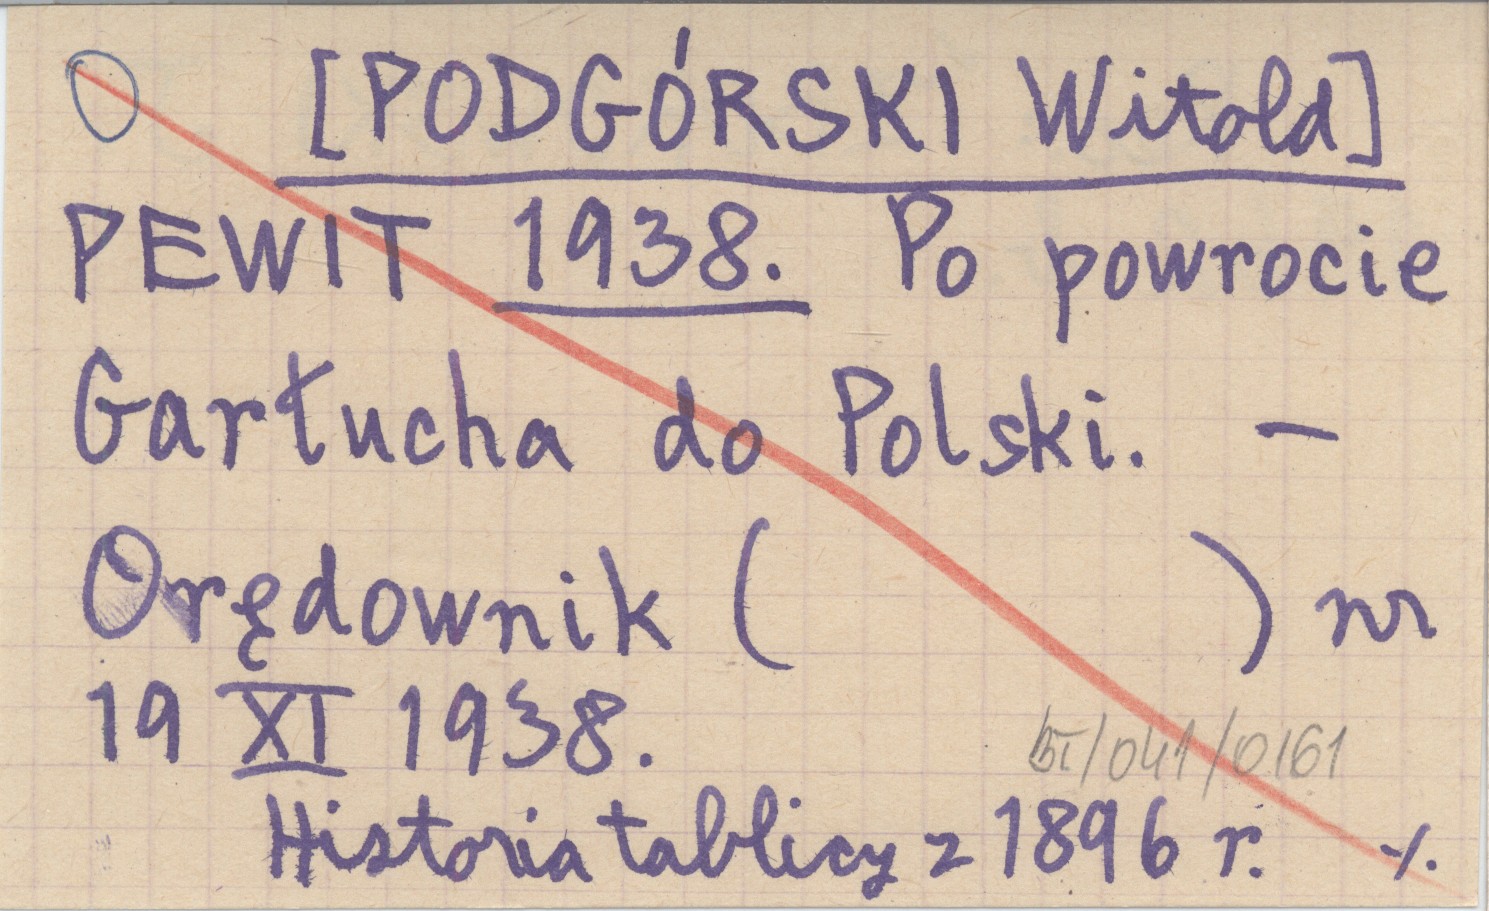 [PODGÓRSKI Witold]
PEWIT 1938. Po powrocie
Garłucha do Polski. —
Orędownik ( ) nr
19 XI 1938.
BI/041/0161
Historia tablicy z 1896 r. ./.